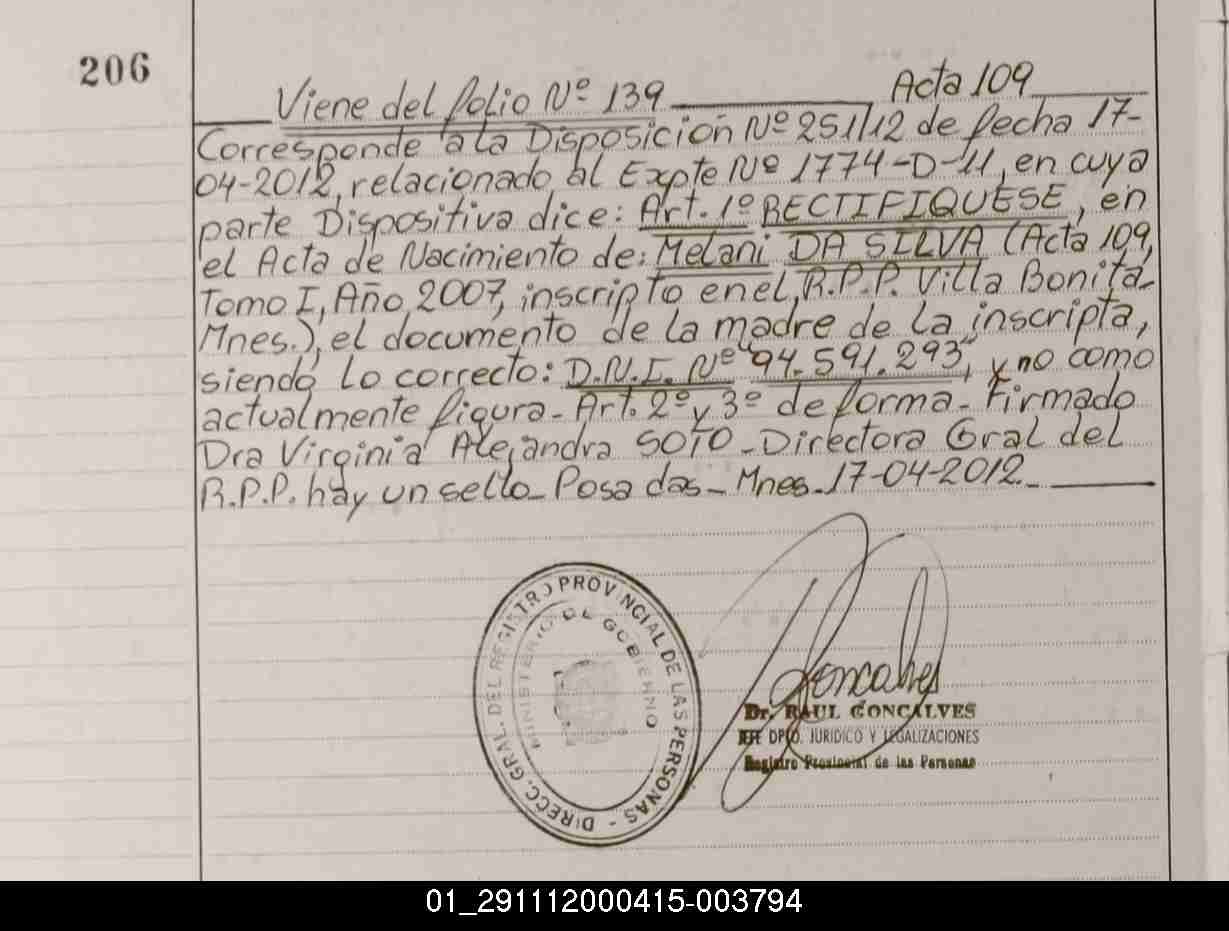 206
Viene del folio Nº 139 Acta 109
Corresponde a la Disposición Nº 251/12 de fecha 17-
04-2012, relacionado al Expte Nº 1774-D-11, en cuya
parte Dispositiva dice: Art. 1º RECTIFIQUESE, en
el Acta de Nacimiento de: Melani DA SILVA (Acta 109,
Tomo I, Año 2007, inscripto en el R.P.P. Villa Bonita-
Mnes.), el documento de la madre de la inscripta,
siendo lo correcto: D.N.I. Nº "94.591.293", y no como
actualmente figura- Art. 2º y 3º de forma- Firmado
Dra Virginia Alejandra SOTO-Directora Gral del
R.P.P. hay un sello- Posadas- Mnes- 17-04-2012.-
DIRECC. GRAL. DEL REGISTRO PROVINCIAL DE LAS PERSONAS -
MINISTERIO DE GOBIERNO
Goncalves
Dr. RAUL GONCALVES
JEFE DPTO. JURIDICO Y LEGALIZACIONES
Registro Provincial de las Personas
01_291112000415-003794